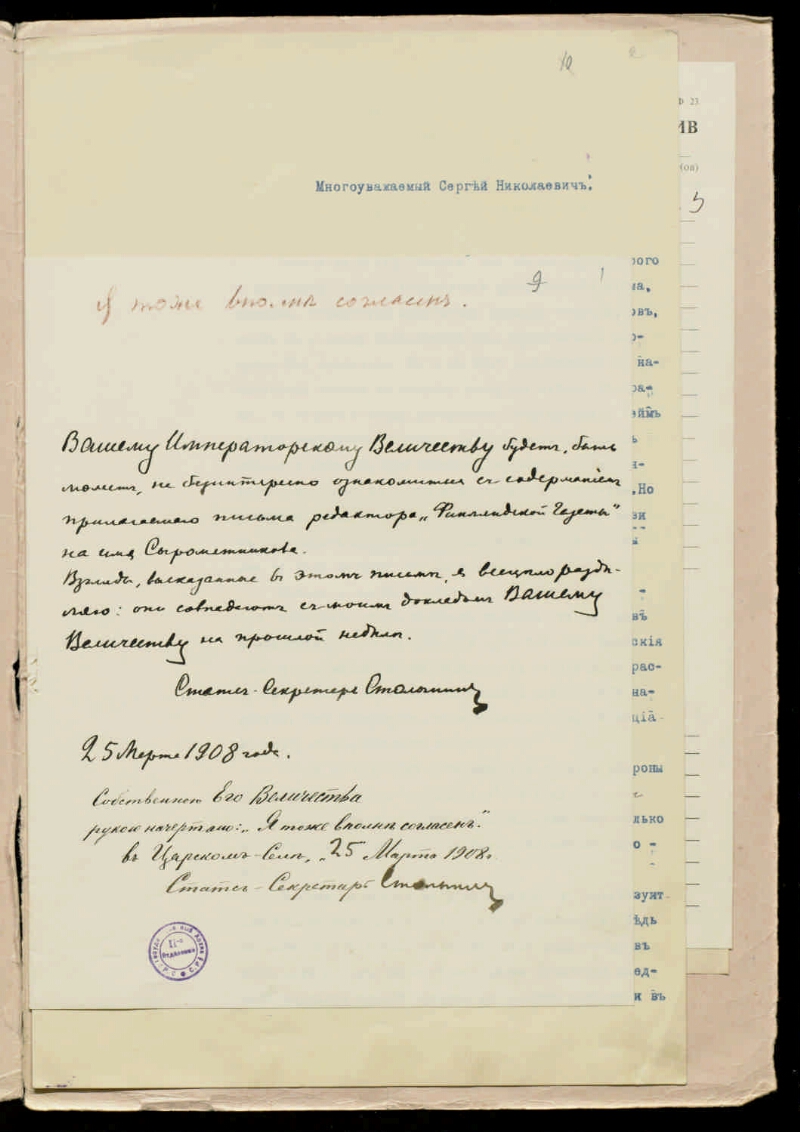 Многоуважаемый Сергѣй Николаевичъ!
9
Я тоже вполнѣ согласенъ.
Вашему Императорскому Величеству будетъ, быть
можетъ, не безинтересно ознакомиться съ содержаніемъ
прилагаемаго письма редактора „Финляндской Газеты"
на имя Сыромятникова.
Взгляды, высказанные въ этомъ письмѣ, я всецѣло раздѣ-
ляю: они совпадаютъ съ моимъ докладомъ Вашему
Величеству на прошлой недѣлѣ.
Статсъ-Секретарь Столыпинъ
25 Марта 1908 года.
Собственною Его Величества
рукою начертано: „Я тоже вполнѣ согласенъ."
въ Царскомъ-Селѣ, „25 Марта 1908г.
Статсъ-Секретарь Столыпинъ
IIго
Отдѣленіе
ИВ
(ов)
5
рого
на,
овъ,
о-
на-
ра-
ейм
ь
и-
„Но
зи
въ
скія
рас-
на-
ціа
роны
лько
о -
зуит
ѣдь
въ
ед-
и въ